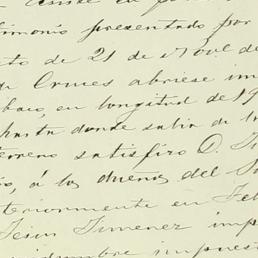 timonio presentado por
to de 21 de Nov.e de
Cruces abriese
bajo, en longitud de 19
hasta donde salia de la
terreno satisfizo D.
á la dueña del
teriormente en Feb
Jesus Jimenez imp
idumbre impuest